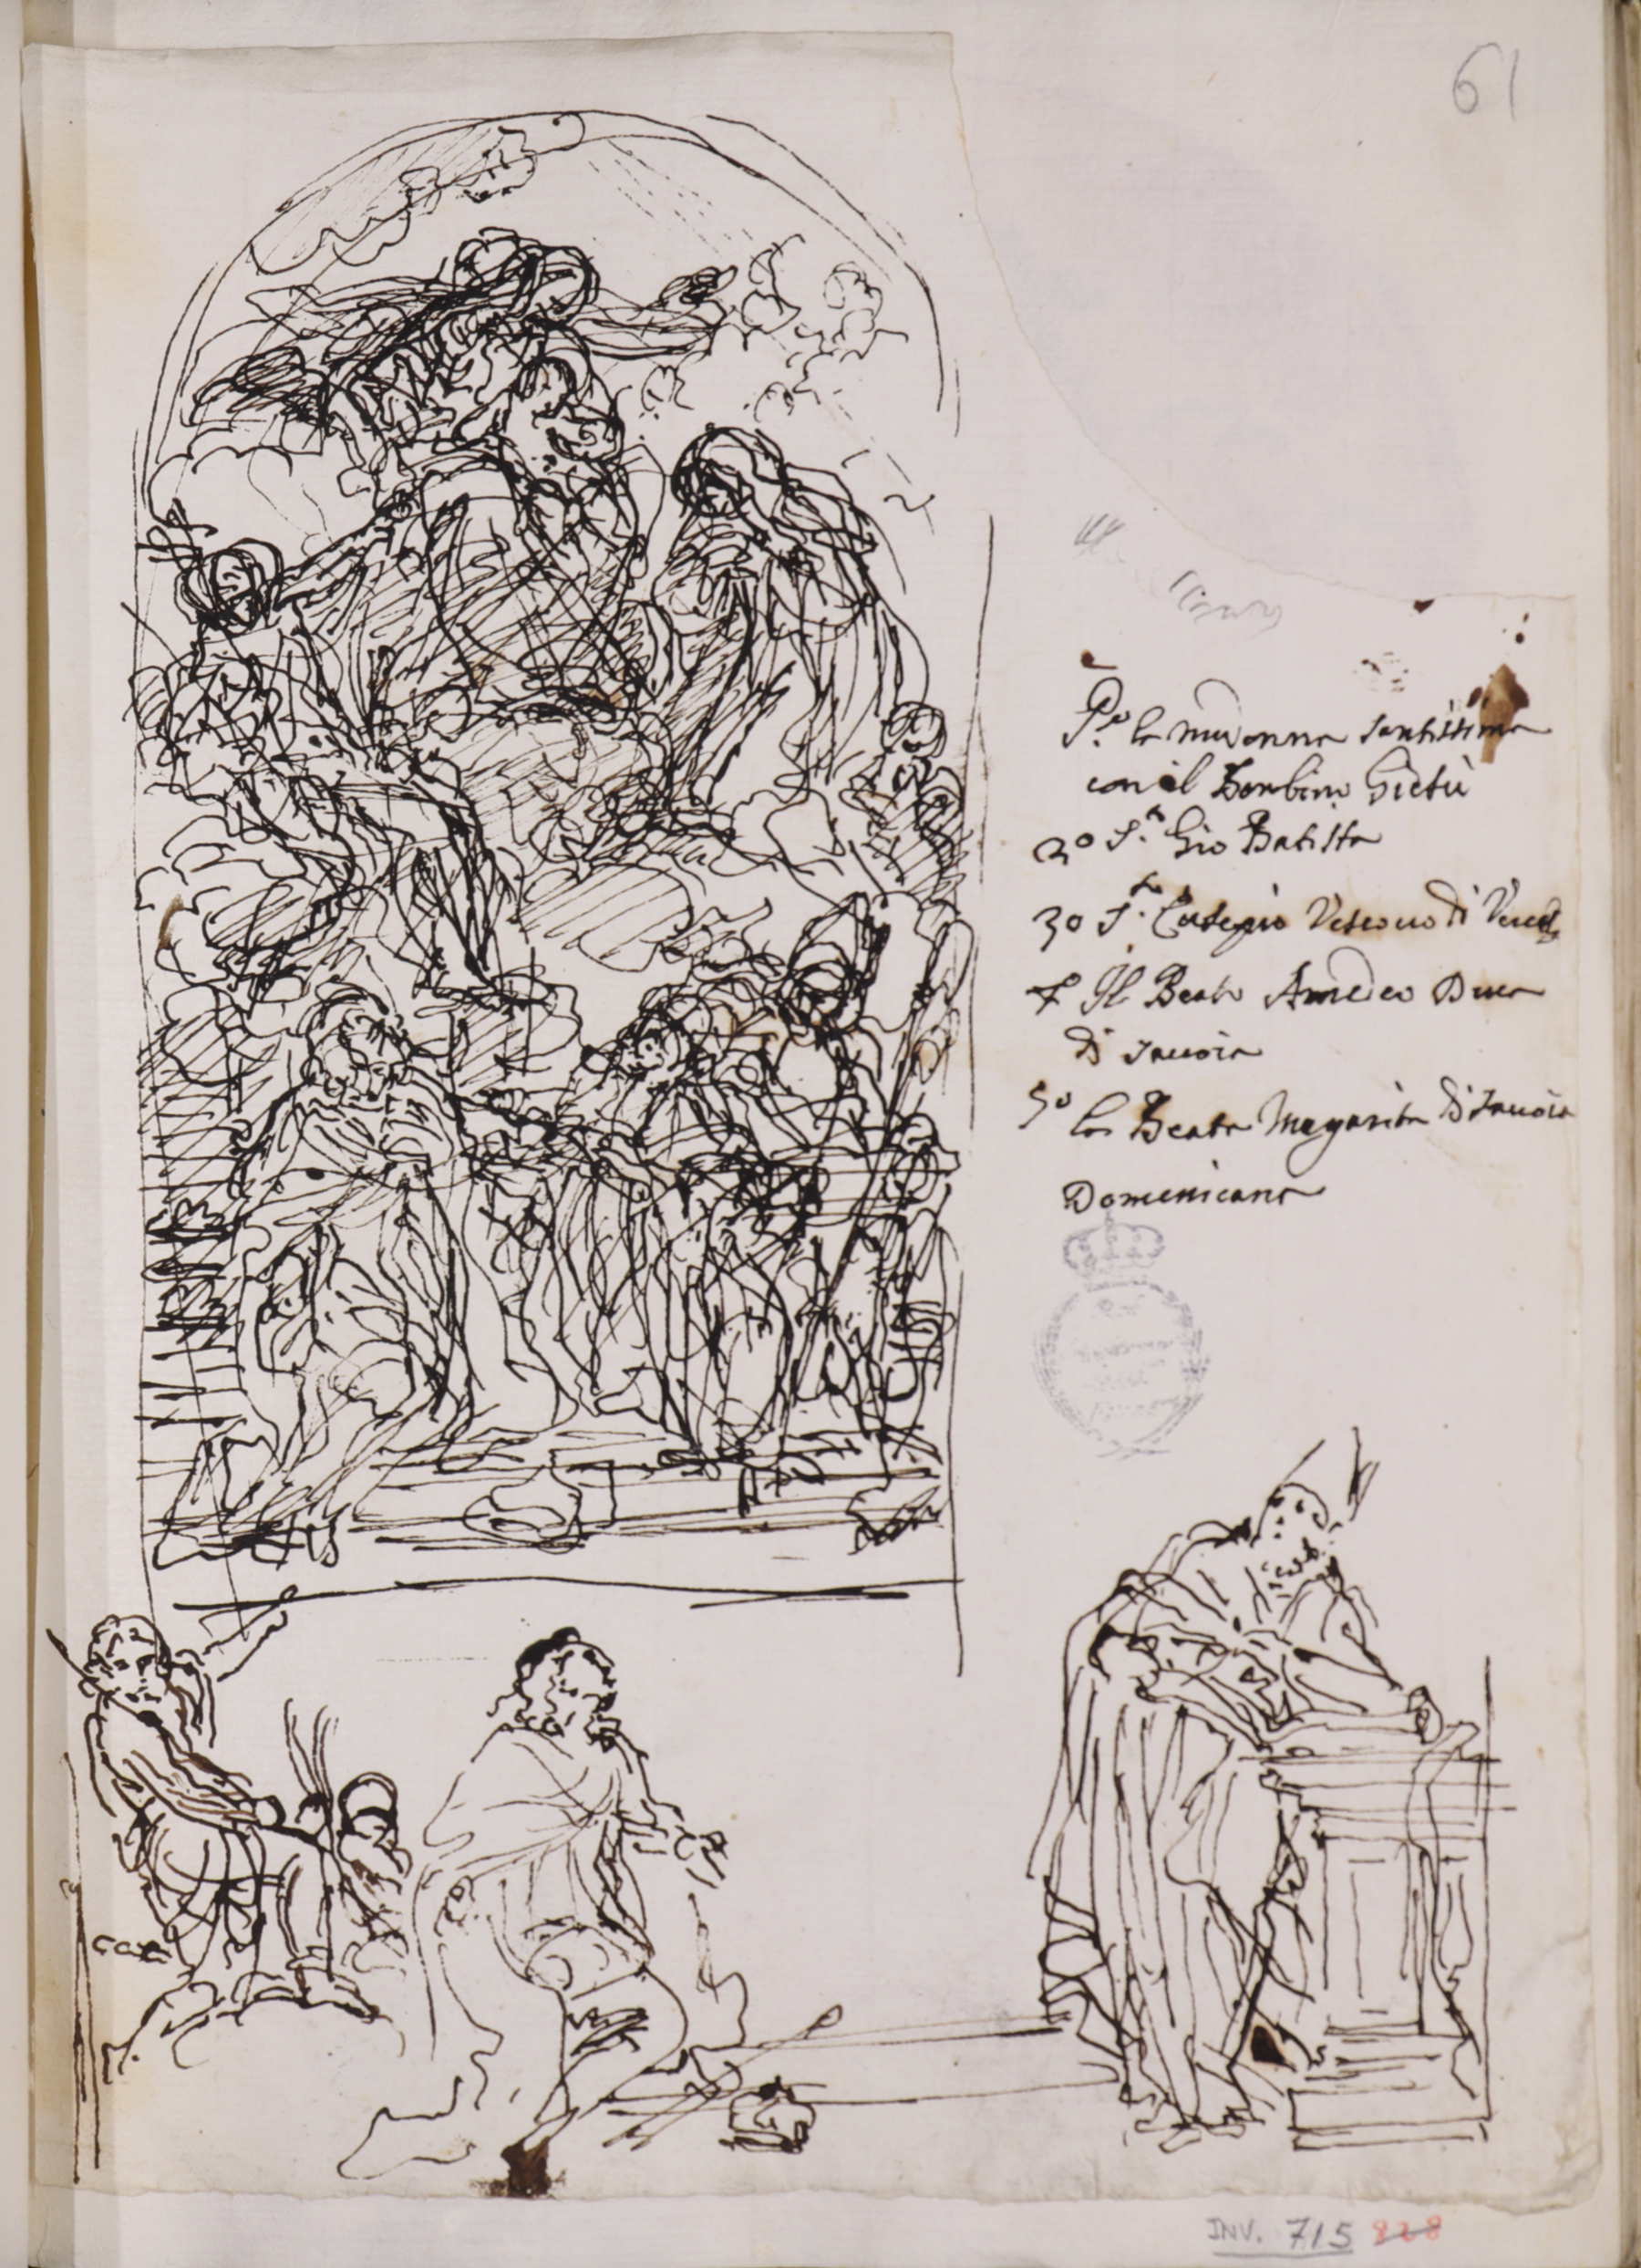 61
P.º la madonna santissima
con il Bombino Giesù
2º S.to Gio Batista
3º S.to Eusepio Vescouo di Vercel
4 Il Beato Amedeo Duca
di Sauoia
5º la Beata Magarita di Sauoia
Domenicana
INV. 715 828